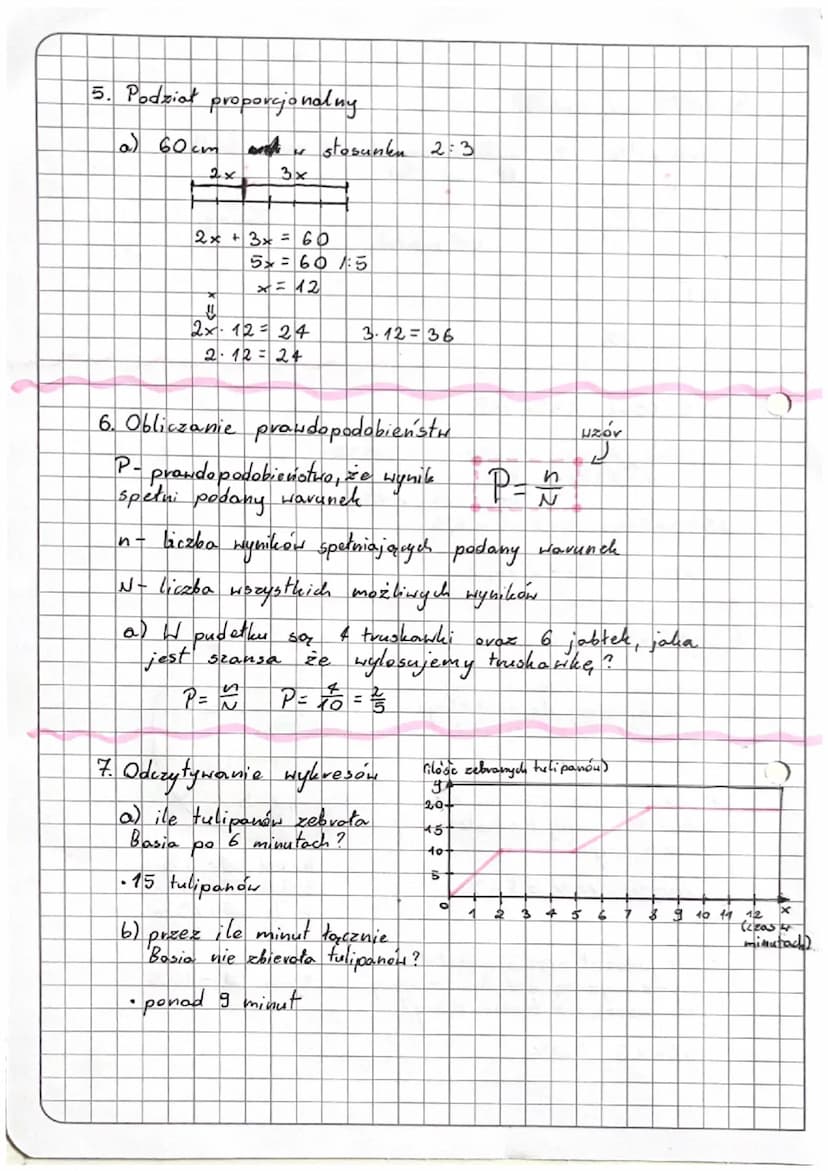 5. Podział proporcjonalny
a) 60 cm w stosunku 2:3
2x 3x
2x + 3x = 60
5x = 60 /:5
x = 12
x
⇓
2x · 12 = 24 3 · 12 = 36
2 · 12 = 24
6. Obliczanie prawdopodobieństw
wzór
P- prawdopodobieństwo, że wynik
spełni podany warunek
P = n/N
n- liczba wyników spełniających podany warunek
N- liczba wszystkich możliwych wyników
a) W pudełku są 4 truskawki oraz 6 jabłek, jaka
jest szansa że wylosujemy truskawkę?
P = n/N P = 4/10 = 2/5
7. Odczytywanie wykresów
a) ile tulipanów zebrała
Basia po 6 minutach?
· 15 tulipanów
b) przez ile minut łącznie
Basia nie zbierała tulipanów?
· ponad 9 minut
(ilość zebranych tulipanów)
y
20
15
10
5
0 1 2 3 4 5 6 7 8 9 10 11 12 x
(czas w
minutach)